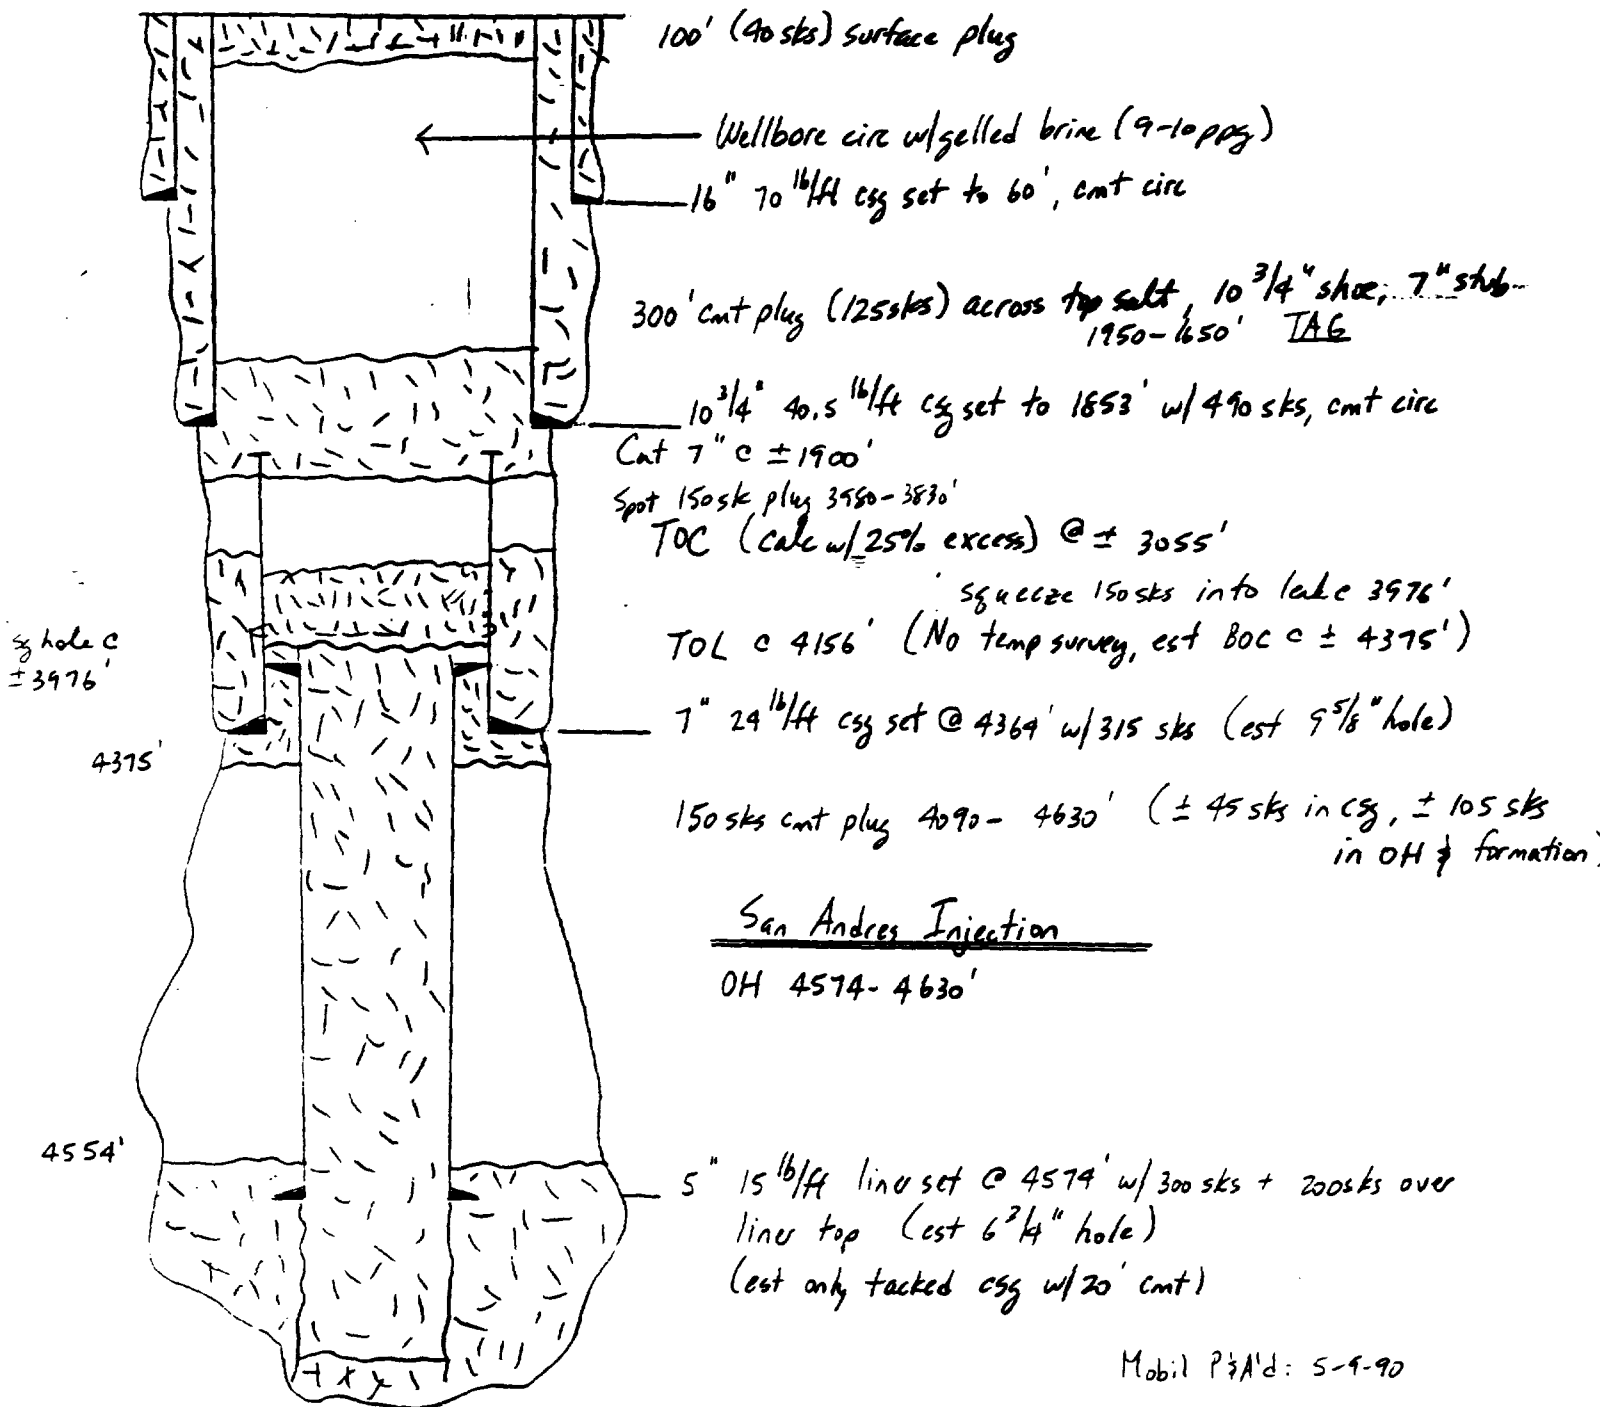 100' (40 sks) surface plug
Wellbore circ w/gelled brine (9-10 ppg)
16" 70 lb/ft csg set to 60', cmt circ
300' cmt plug (125sks) across top salt, 10 3/4" shoe, 7" stub
1950-1650' TAG
10 3/4" 40.5 lb/ft csg set to 1853' w/ 490 sks, cmt circ
Cut 7" @ ±1900'
Spot 150sk plug 3980-3830'
TOC (calc w/ 25% excess) @ ± 3055'
squeeze 150sks into leak @ 3976'
sq hole @
±3976'
TOL @ 4156' (No temp survey, est BOC @ ± 4375')
7" 24 lb/ft csg set @ 4364' w/ 315 sks (est 9 5/8" hole)
4375'
150 sks cmt plug 4090- 4630' (± 45 sks in csg, ± 105 sks
in OH & formation)
San Andres Injection
OH 4574- 4630'
4554'
5" 15 lb/ft liner set @ 4574' w/ 300 sks + 200sks over
liner top (est 6 3/4" hole)
(est only tacked csg w/20' cmt)
Mobil P&A'd: 5-9-90